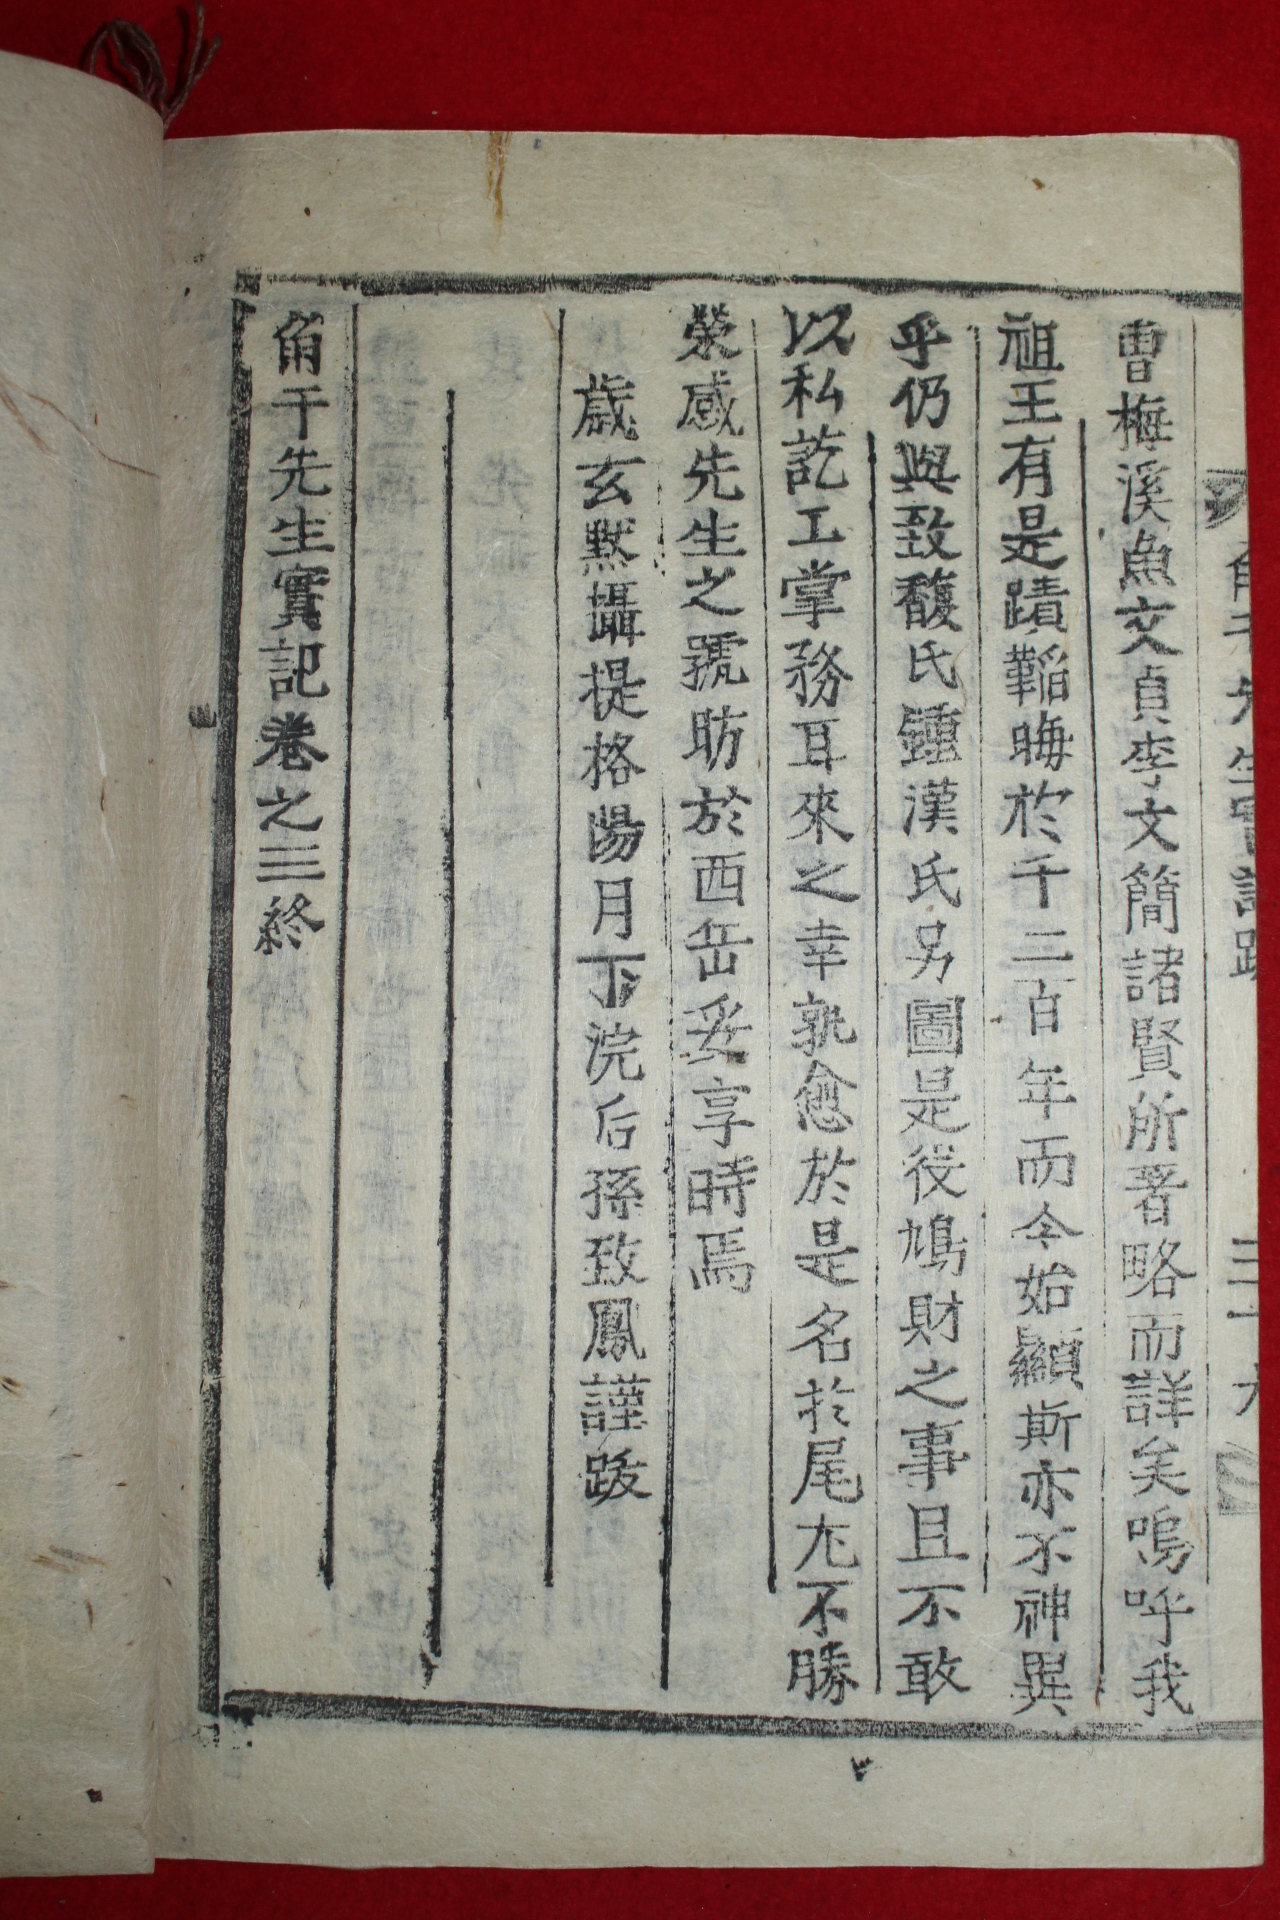 曹梅溪魚文貞李文簡諸賢所著略而詳矣嗚呼我
祖王有是蹟韜晦於千二百年而今始顯斯亦不神異
乎仍與致馥氏鍾漢氏另圖是役鳩財之事且不敢
以私訖工掌務耳來之幸孰愈於是名於尾尤不勝
荣感先生之號昉於西岳妥享時焉
歲玄黙攝提格陽月下浣后孫致鳳謹跋
角干先生實記卷之三終